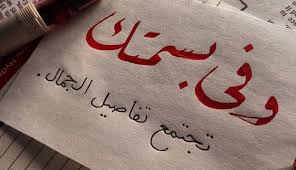 وفي بسمتك
تجتمع تفاصيل الجمال.